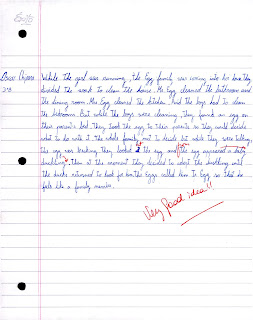 While the girl was running, the Egg family was coming into her house they
divided the work to clean the house. Mr Egg cleaned the bathroom and
the dining room. Mrs Egg cleaned the kitchen. And the boys had to clean
the bedrooms. But while the boys were cleaning, they found an egg on
their parent's bed. They took the egg to their parents so they could decide
what to do with it. the whole family met to decide but while they were talking
the egg was the egg and the egg appeared a dirty
duckling, then at the moment they decided to adopt the duckling until
the ducks returned to look for him. the Eggs called him to Egg so that he
felt like a family member.
Very good idea!!